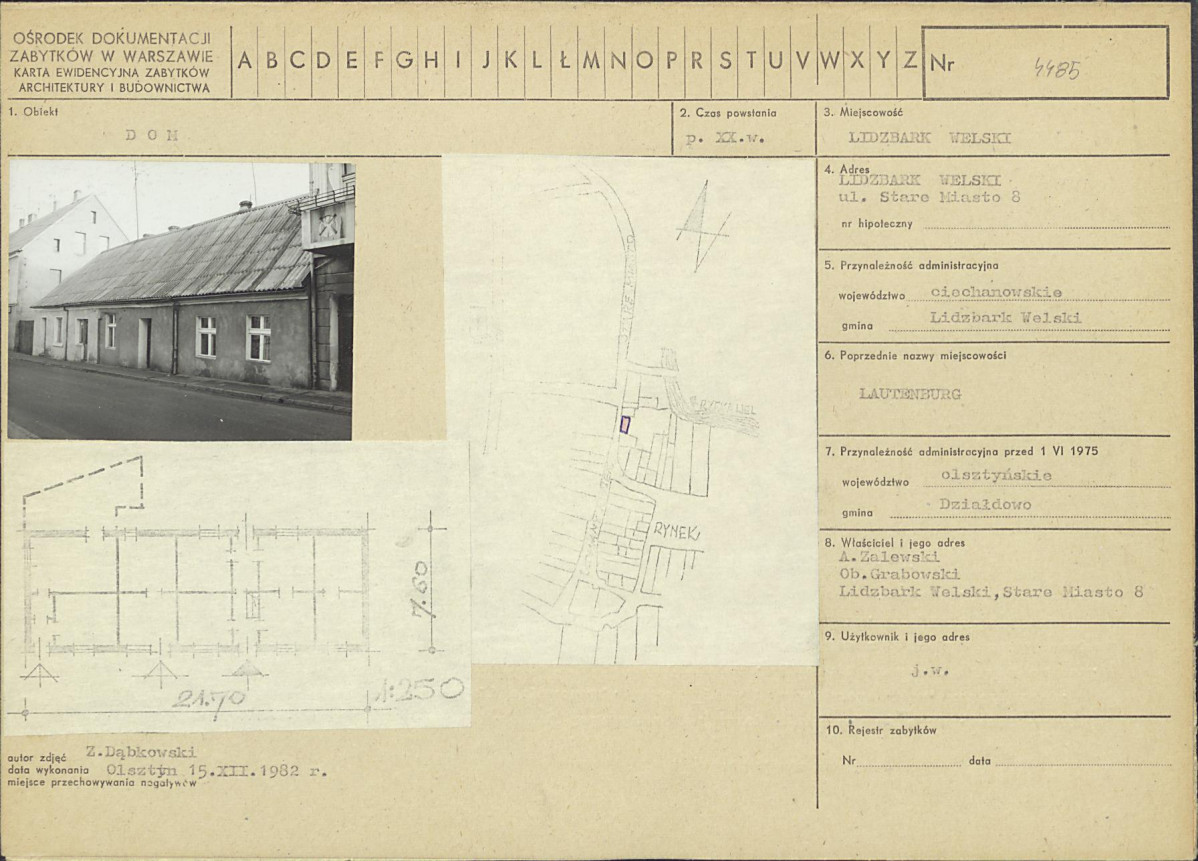 OŚRODEK DOKUMENTACJI
ZABYTKÓW W WARSZAWIE
KARTA EWIDENCYJNA ZABYTKÓW
ARCHITEKTURY I BUDOWNICTWA
A B C D E F G H I J K L Ł M N O P R S T U V W X Y Z
Nr 4485
1. Obiekt
D O M
2. Czas powstania
p. XX.w.
3. Miejscowość
LIDZBARK WELSKI
4. Adres
LIDZBARK WELSKI
ul. Stare Miasto 8
nr hipoteczny
5. Przynależność administracyjna
województwo ciechanowskie
gmina Lidzbark Welski
6. Poprzednie nazwy miejscowości
LAUTENBURG
7. Przynależność administracyjna przed 1 VI 1975
województwo olsztyńskie
gmina Działdowo
8. Właściciel i jego adres
A.Zalewski
Ob.Grabowski
Lidzbark Welski,Stare Miasto 8
9. Użytkownik i jego adres
j.w.
10. Rejestr zabytków
Nr data
RYNEK
7.60
21.70
1:250
autor zdjęć Z.Dąbkowski
data wykonania Olsztyn 15.XII.1982 r.
miejsce przechowywania negatywów